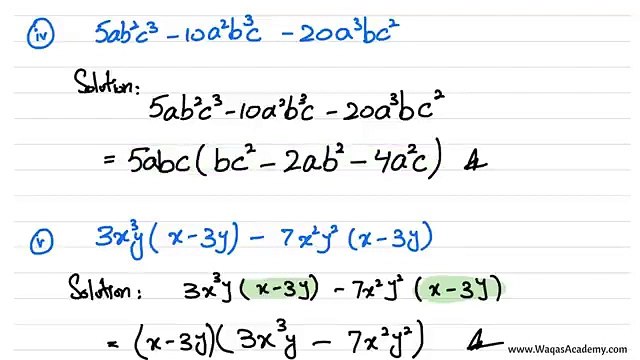 iv 5ab²c³ - 10a²b³c - 20a³bc²
Solution:
5ab²c³ - 10a²b³c - 20a³bc²
= 5abc(bc² - 2ab² - 4a²c)
v 3x³y(x-3y) - 7x²y²(x-3y)
Solution: 3x³y(x-3y) - 7x²y²(x-3y)
= (x-3y)(3x³y - 7x²y²)
www.WaqasAcademy.com